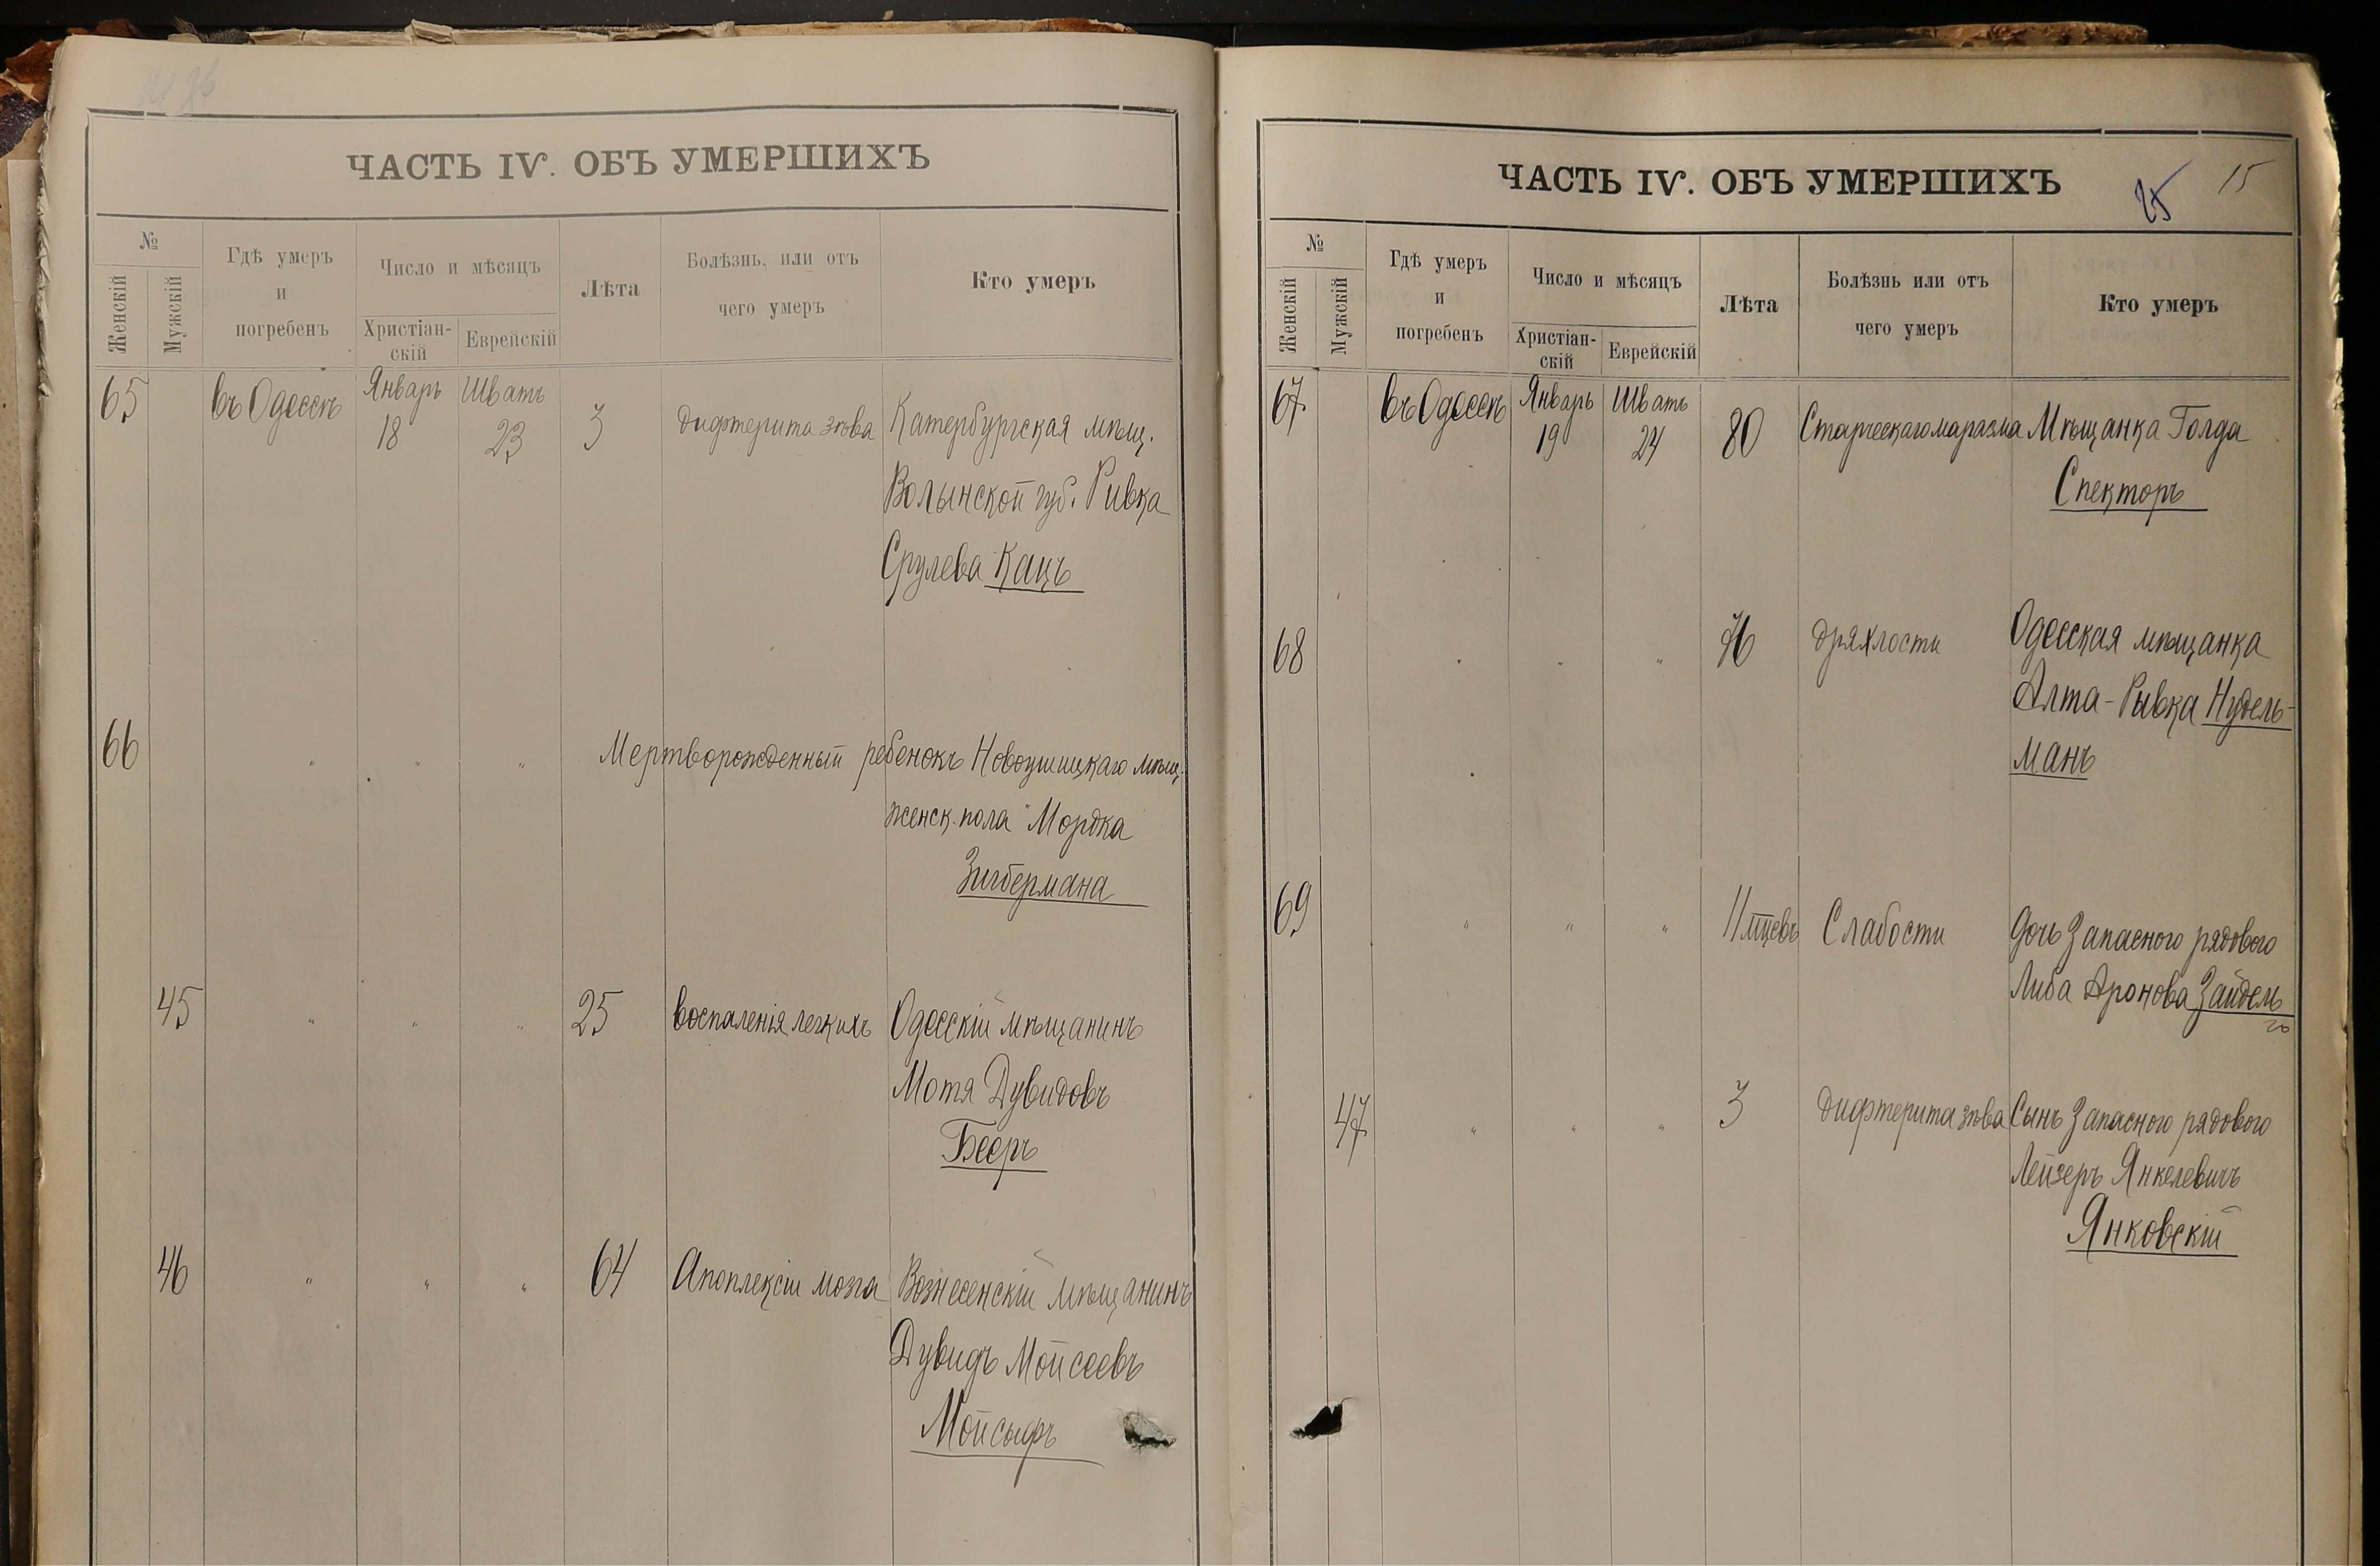 ЧАСТЬ IV. ОБЪ УМЕРШИХЪ
№
Женскій
Мужскій
Гдѣ умеръ
и
погребенъ
Число и мѣсяцъ
Христіан-
скій
Еврейскій
Лѣта
Болѣзнь, или отъ
чего умеръ
Кто умеръ
65 въ Одессѣ Январь 18 Шватъ 23 3 дифтерита зѣва Катербургская мѣщ.
Волынской губ. Ривка
Срулева Кацъ
66 " " " Мертворожденный ребенокъ Новоушицкаго мѣщ.
женск. пола Мордка
Зигбермана
45 " " " 25 воспаленія легкихъ Одесскій мѣщанинъ
Мотя Дувидовъ
Бееръ
46 " " " 64 Апоплексіи мозга Вознесенскій мѣщанинъ
Дувидъ Мойсеевъ
Мойсыфъ
ЧАСТЬ IV. ОБЪ УМЕРШИХЪ
25 15
№
Женскій
Мужскій
Гдѣ умеръ
и
погребенъ
Число и мѣсяцъ
Христіан-
скій
Еврейскій
Лѣта
Болѣзнь или отъ
чего умеръ
Кто умеръ
67 въ Одессѣ Январь 19 Шватъ 24 80 Старческаго маразма Мѣщанка Голда
Спекторъ
68 " " " 76 дряхлости Одесская мѣщанка
Алта-Рывка Нудель-
манъ
69 " " " 11 мцевъ Слабости Дочь Запасного рядового
Либа Аронова Зайдель
47 " " " 3 дифтерита зѣва Сынъ Запасного рядового
Лейзеръ Янкелевичъ
Янковскій